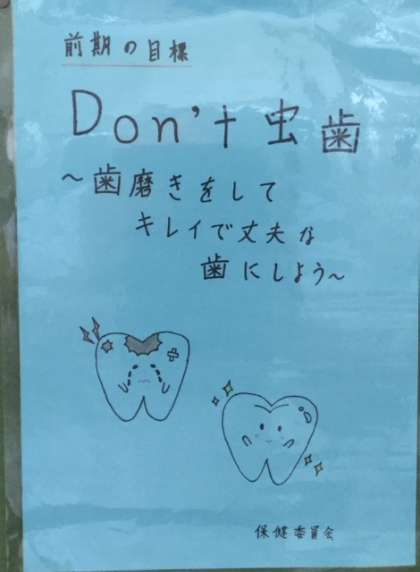 前期の目標
Don't 虫歯
～歯磨きをして
キレイで丈夫な
歯にしよう～
保健委員会